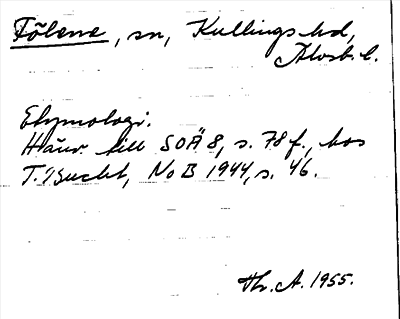 Fölene, sn, Kullings hd,
Älvsb. l.
Etymologi.
Hänv. till SOÄ 8, s. 78 f., hos
T. Bucht, NoB 1944, s. 46.
Th. A. 1955.